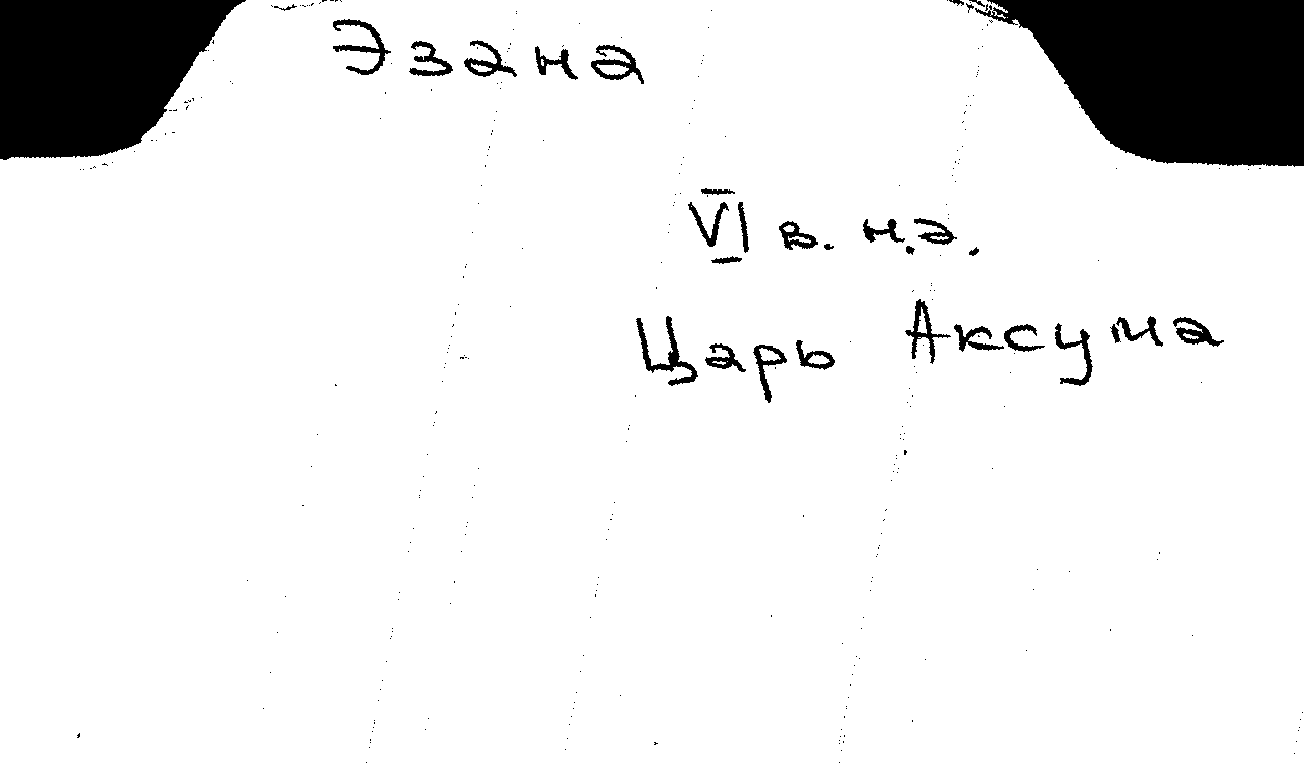 Эзана
VI в. н.э.
Царь Аксума